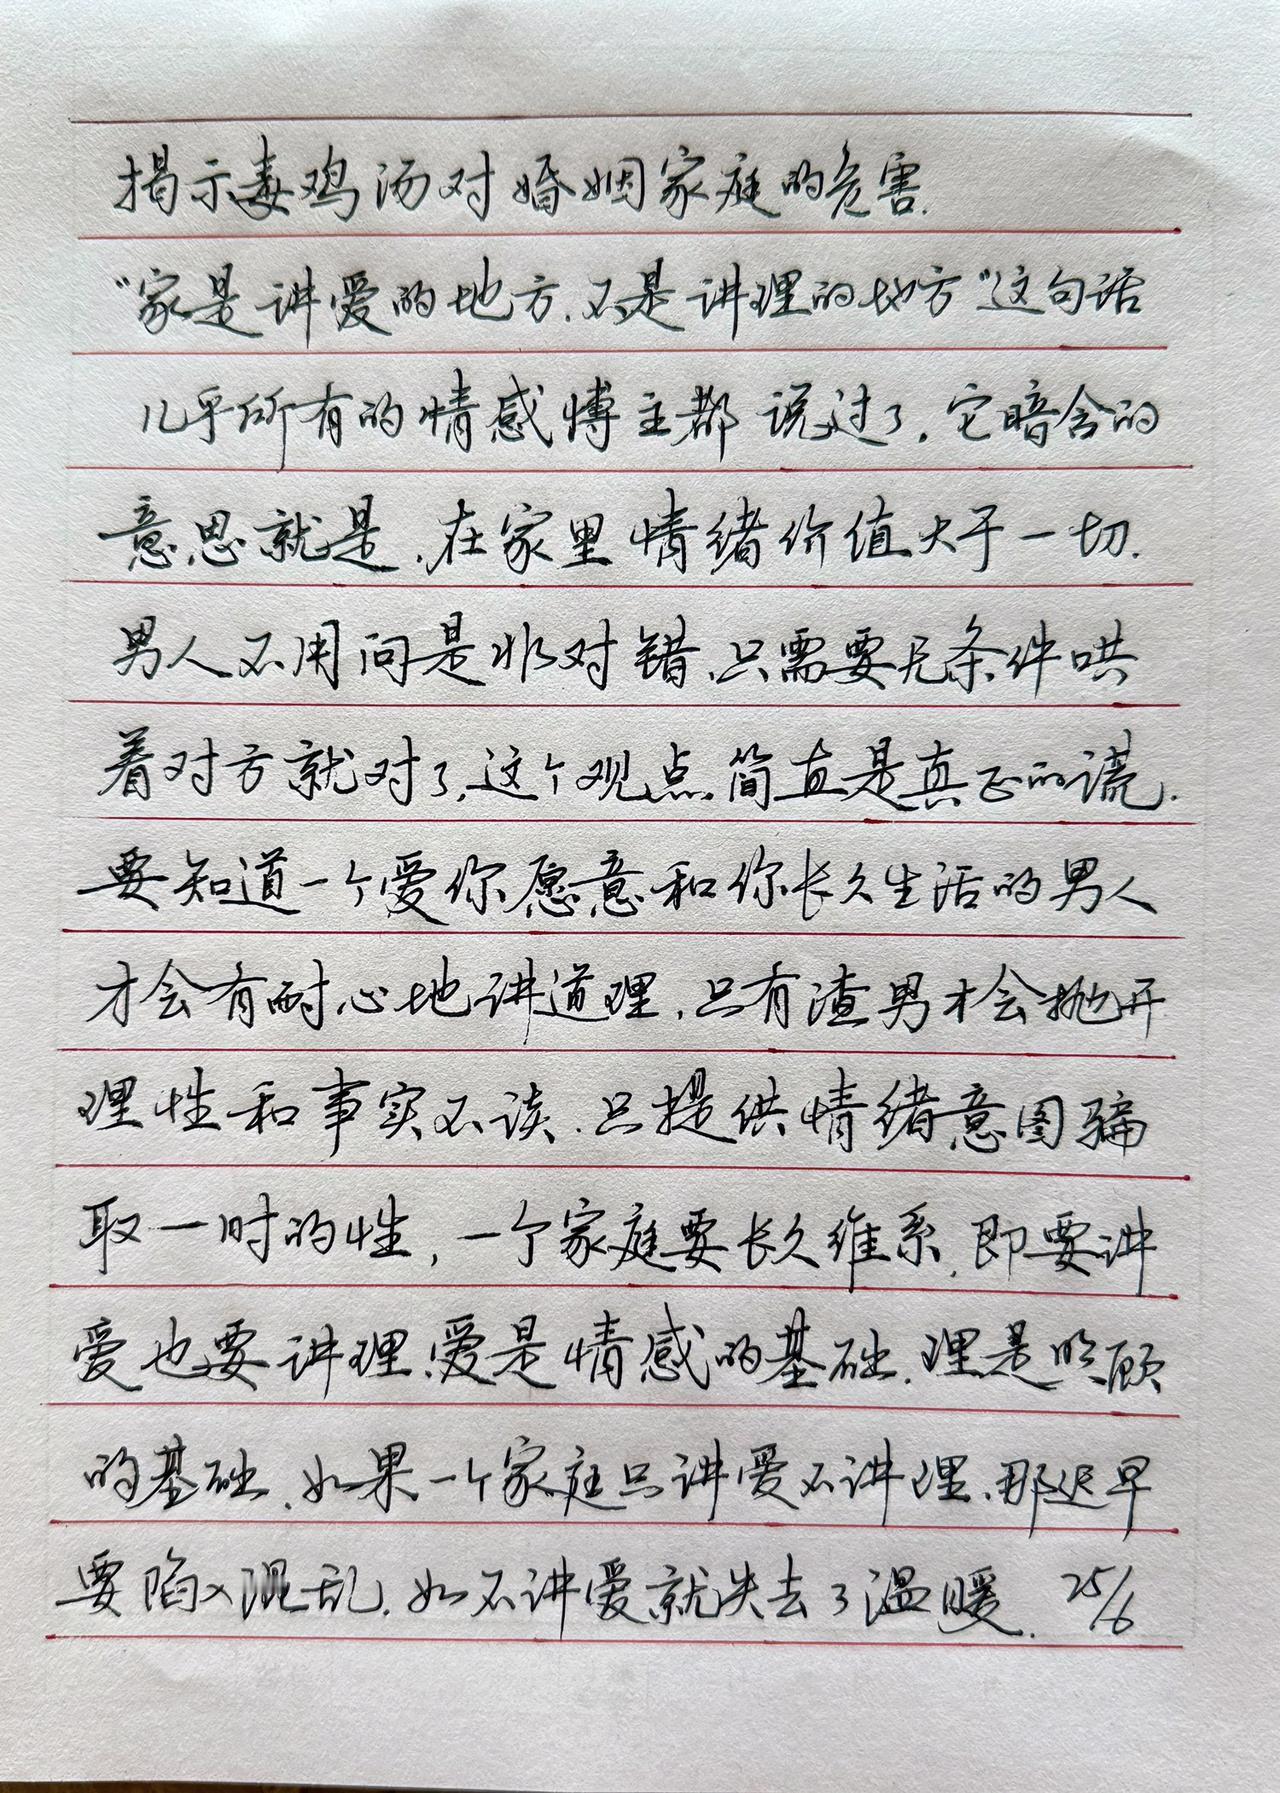 揭示毒鸡汤对婚姻家庭的危害.
“家是讲爱的地方.不是讲理的地方”这句话
几乎所有的情感博主都说过了.它暗含的
意思就是,在家里情绪价值大于一切.
男人不用问是非对错.只需要无条件哄
着对方就对了,这个观点.简直是真正的谎.
要知道一个爱你愿意和你长久生活的男人
才会有耐心地讲道理.只有渣男才会抛开
理性和事实不谈.只提供情绪意图骗
取一时的性,一个家庭要长久维系.即要讲
爱也要讲理.爱是情感的基础.理是照顾
的基础.如果一个家庭只讲爱不讲理.那迟早
要陷入混乱.如不讲爱就失去了温暖. 25/6